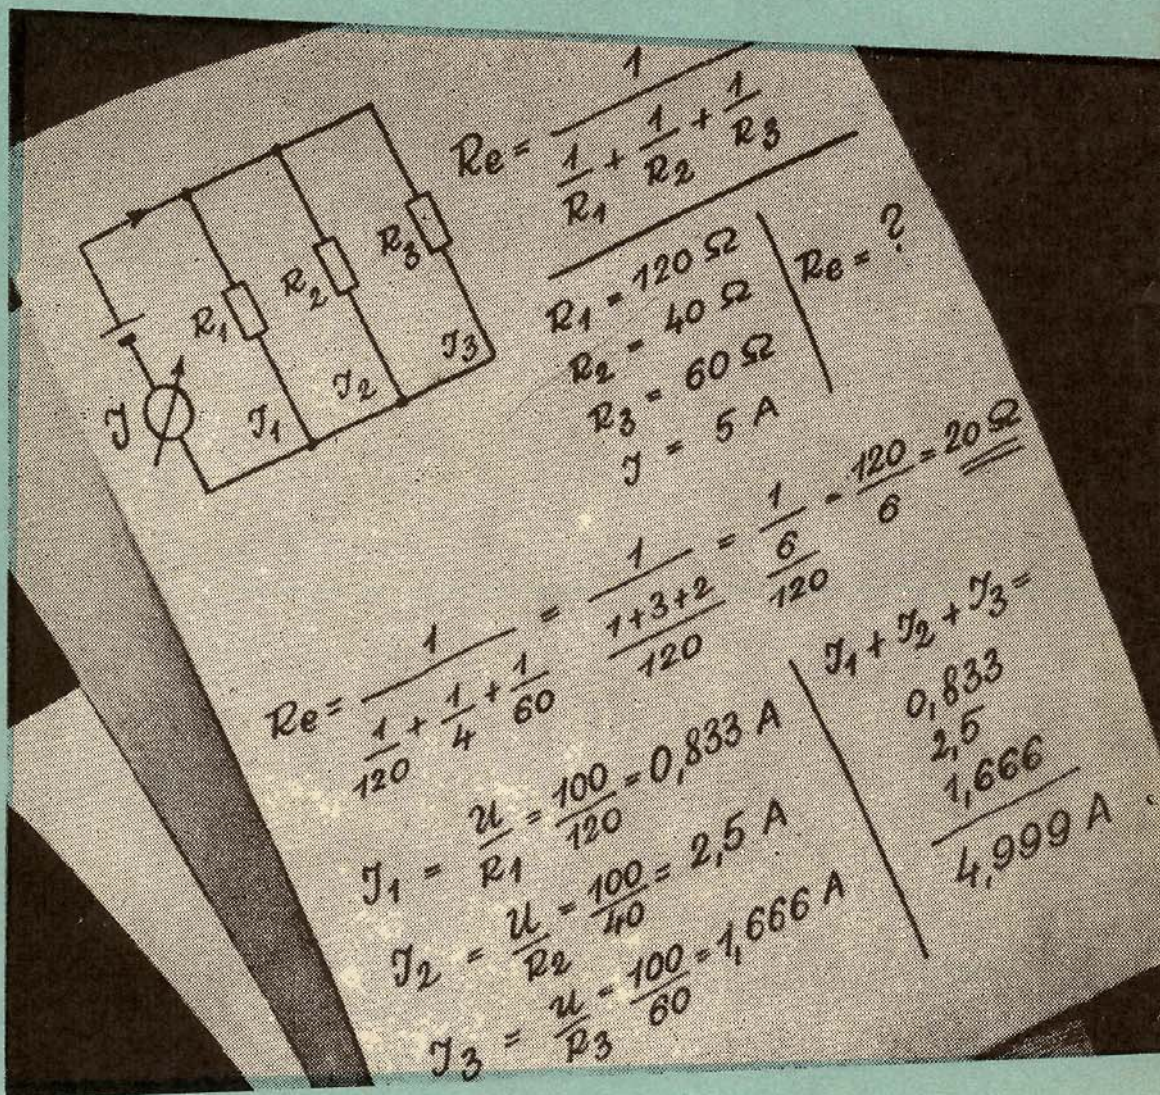 Re = 1 / (1/R1 + 1/R2 + 1/R3)
R1
R2
R3
J
J1
J2
J3
R1 = 120 Ω
R2 = 40 Ω
R3 = 60 Ω
J = 5 A
Re = ?
Re = 1 / (1/120 + 1/4 + 1/60) = 1 / ((1+3+2)/120) = 1 / (6/120) = 120/6 = 20 Ω
J1 = U/R1 = 100/120 = 0,833 A
J2 = U/R2 = 100/40 = 2,5 A
J3 = U/R3 = 100/60 = 1,666 A
J1 + J2 + J3 =
0,833
2,5
1,666
4,999 A